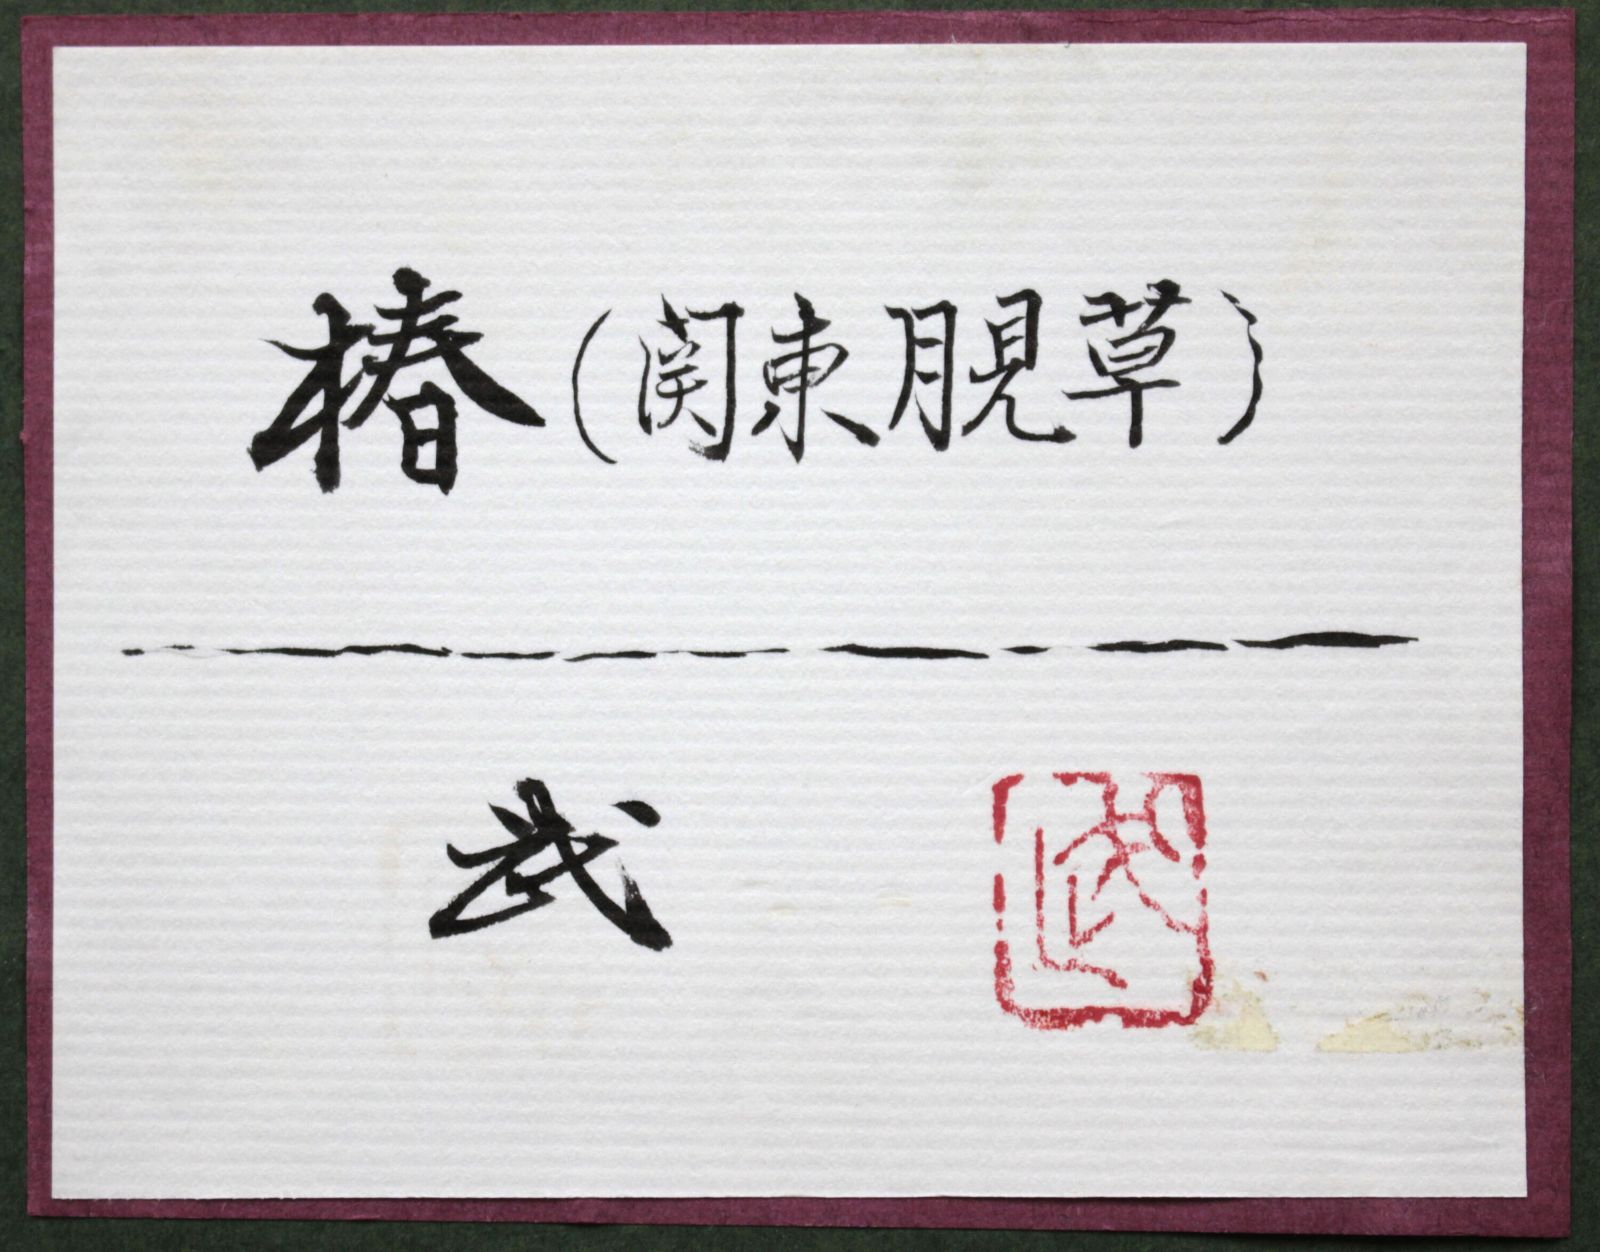 椿(関東月見草)
武
武